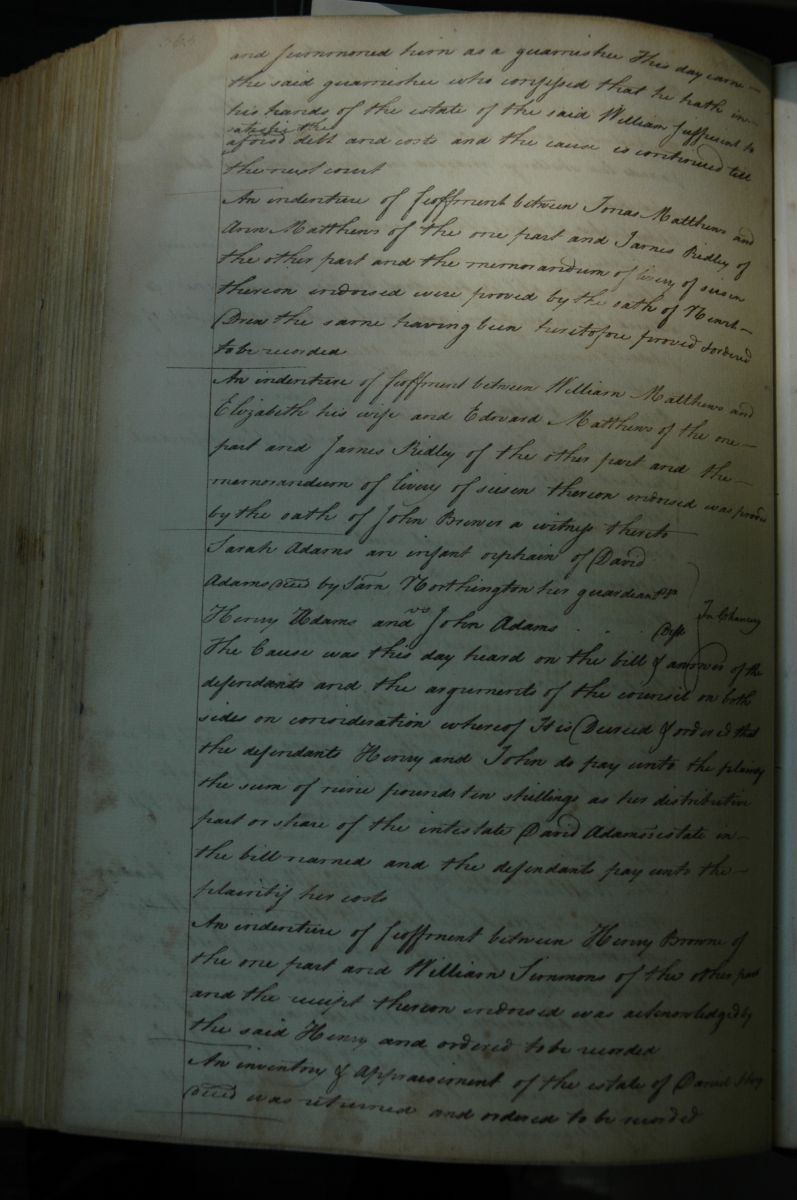 and summoned him as a guarnishee This day came –
the said guarnishee who confessed that he hath in –
his hands of the estate of the said William sufficient to
satisfie the
aforsd debt and costs and the cause is continued till
the next court
An indenture of feoffment between Jonas Matthews and
Ann Matthews of the one part and James Ridley of
the other part and the memorandum of livery of seisin
thereon indorsed were proved by the oath of Newit –
Drew the same having been heretofore proved & ordered
to be recorded
An indenture of feoffment between William Matthews and
Elizabeth his wife and Edward Matthews of the one –
part and James Ridley of the other part and the –
memorandum of livery of seisen thereon indorsed was proved
by the oath of John Brewer a witness thereto
Sarah Adams an infant orphain of David
Adams deced by Sam Northington her guardian
vs
Henry Adams and John Adams
In Chancery
The Cause was this day heard on the bill & answer of the
defendants and the arguments of the council on both
sides on consideration whereof It is Decreed & ordered that
the defendants Henry and John do pay unto the plaintif
the sum of nine pounds ten shillings as her distributive
part or share of the intestate David Adams's estate in –
the bill named and the defendants pay unto the –
plaintif her costs
An indenture of feoffment between Henry Browne of
the one part and William Simmons of the other part
and the receipt thereon indorsed was acknowledged by
the said Henry and ordered to be recorded
An inventory & appraisement of the estate of David
deced was returned and ordered to be recorded